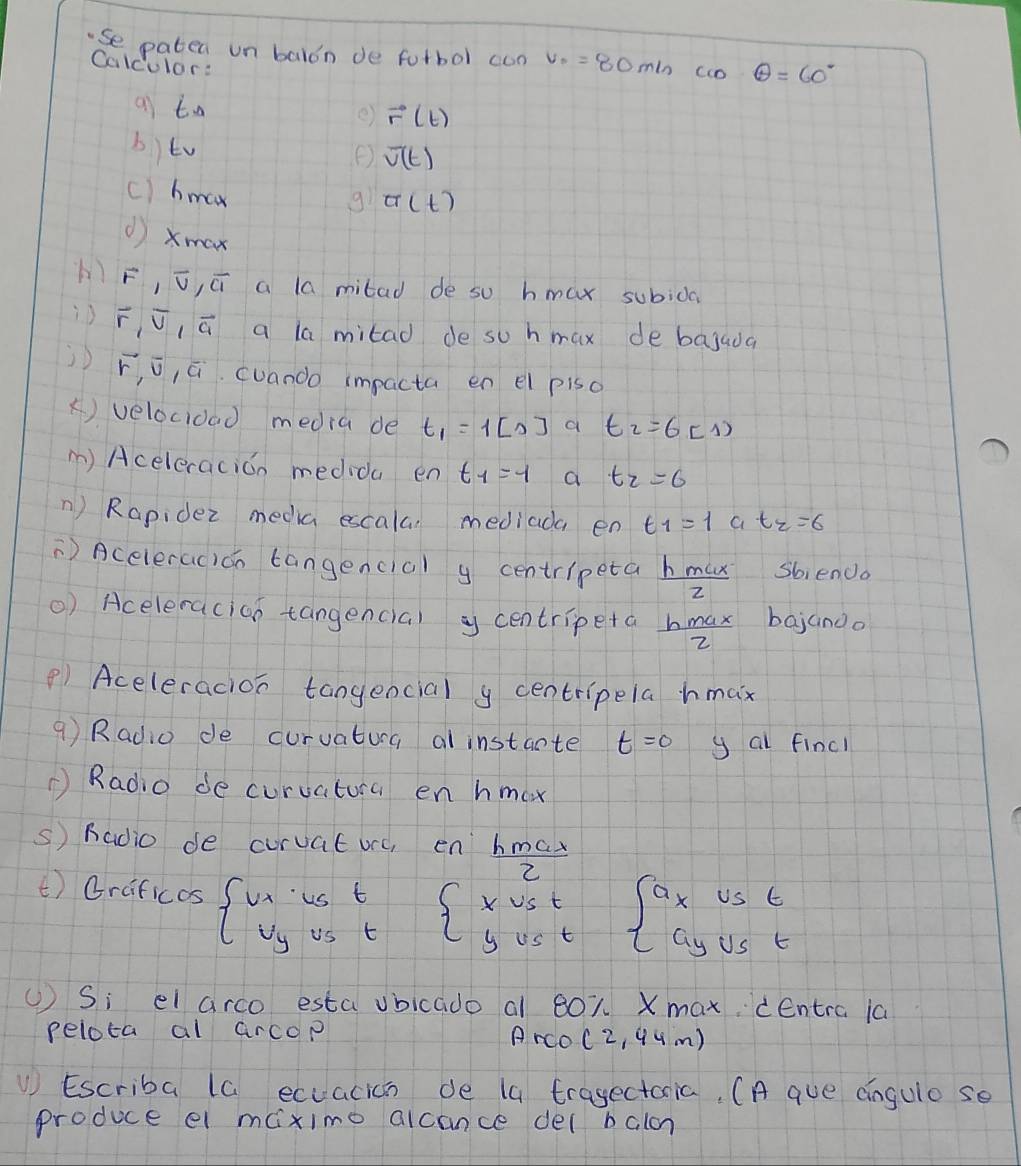 • Se patea un balón de futbol con v₀ = 80 m/s con θ = 60°
Calcular:
a) ts
b) tv
c) hmax
d) xmax
e) r⃗(t)
f) v̄(t)
g) ā(t)
h) r̄, v̄, ā a la mitad de su hmax subida
i) r̄, v̄, ā a la mitad de su h max de bajada
j) r̄, v̄, ā. cuando impacta en el piso
k) velocidad media de t₁ = 1[s] a t₂ = 6[s]
m) Aceleración medida en t1 = 1 a t2 = 6
n) Rapidez media escalar mediada en t1 = 1 a t2 = 6
ñ) Aceleración tangencial y centrípeta hmax/2 sbiendo
o) Aceleración tangencial y centrípeta hmax/2 bajando
p) Aceleración tangencial y centrípela hmáx
q) Radio de curvatura al instante t=0 y al final
r) Radio de curvatura en hmax
s) Radio de curvatura en hmax/2
t) Gráficos { vx vs t { x vs t { ax vs t
vy vs t y vs t ay vs t
u) Si el arco esta ubicado al 80% Xmax. ¿Entra la
pelota al arco? Arco (2,44m)
v) Escriba la ecuación de la trayectoria. (A que ángulo se
produce el máximo alcance del balon